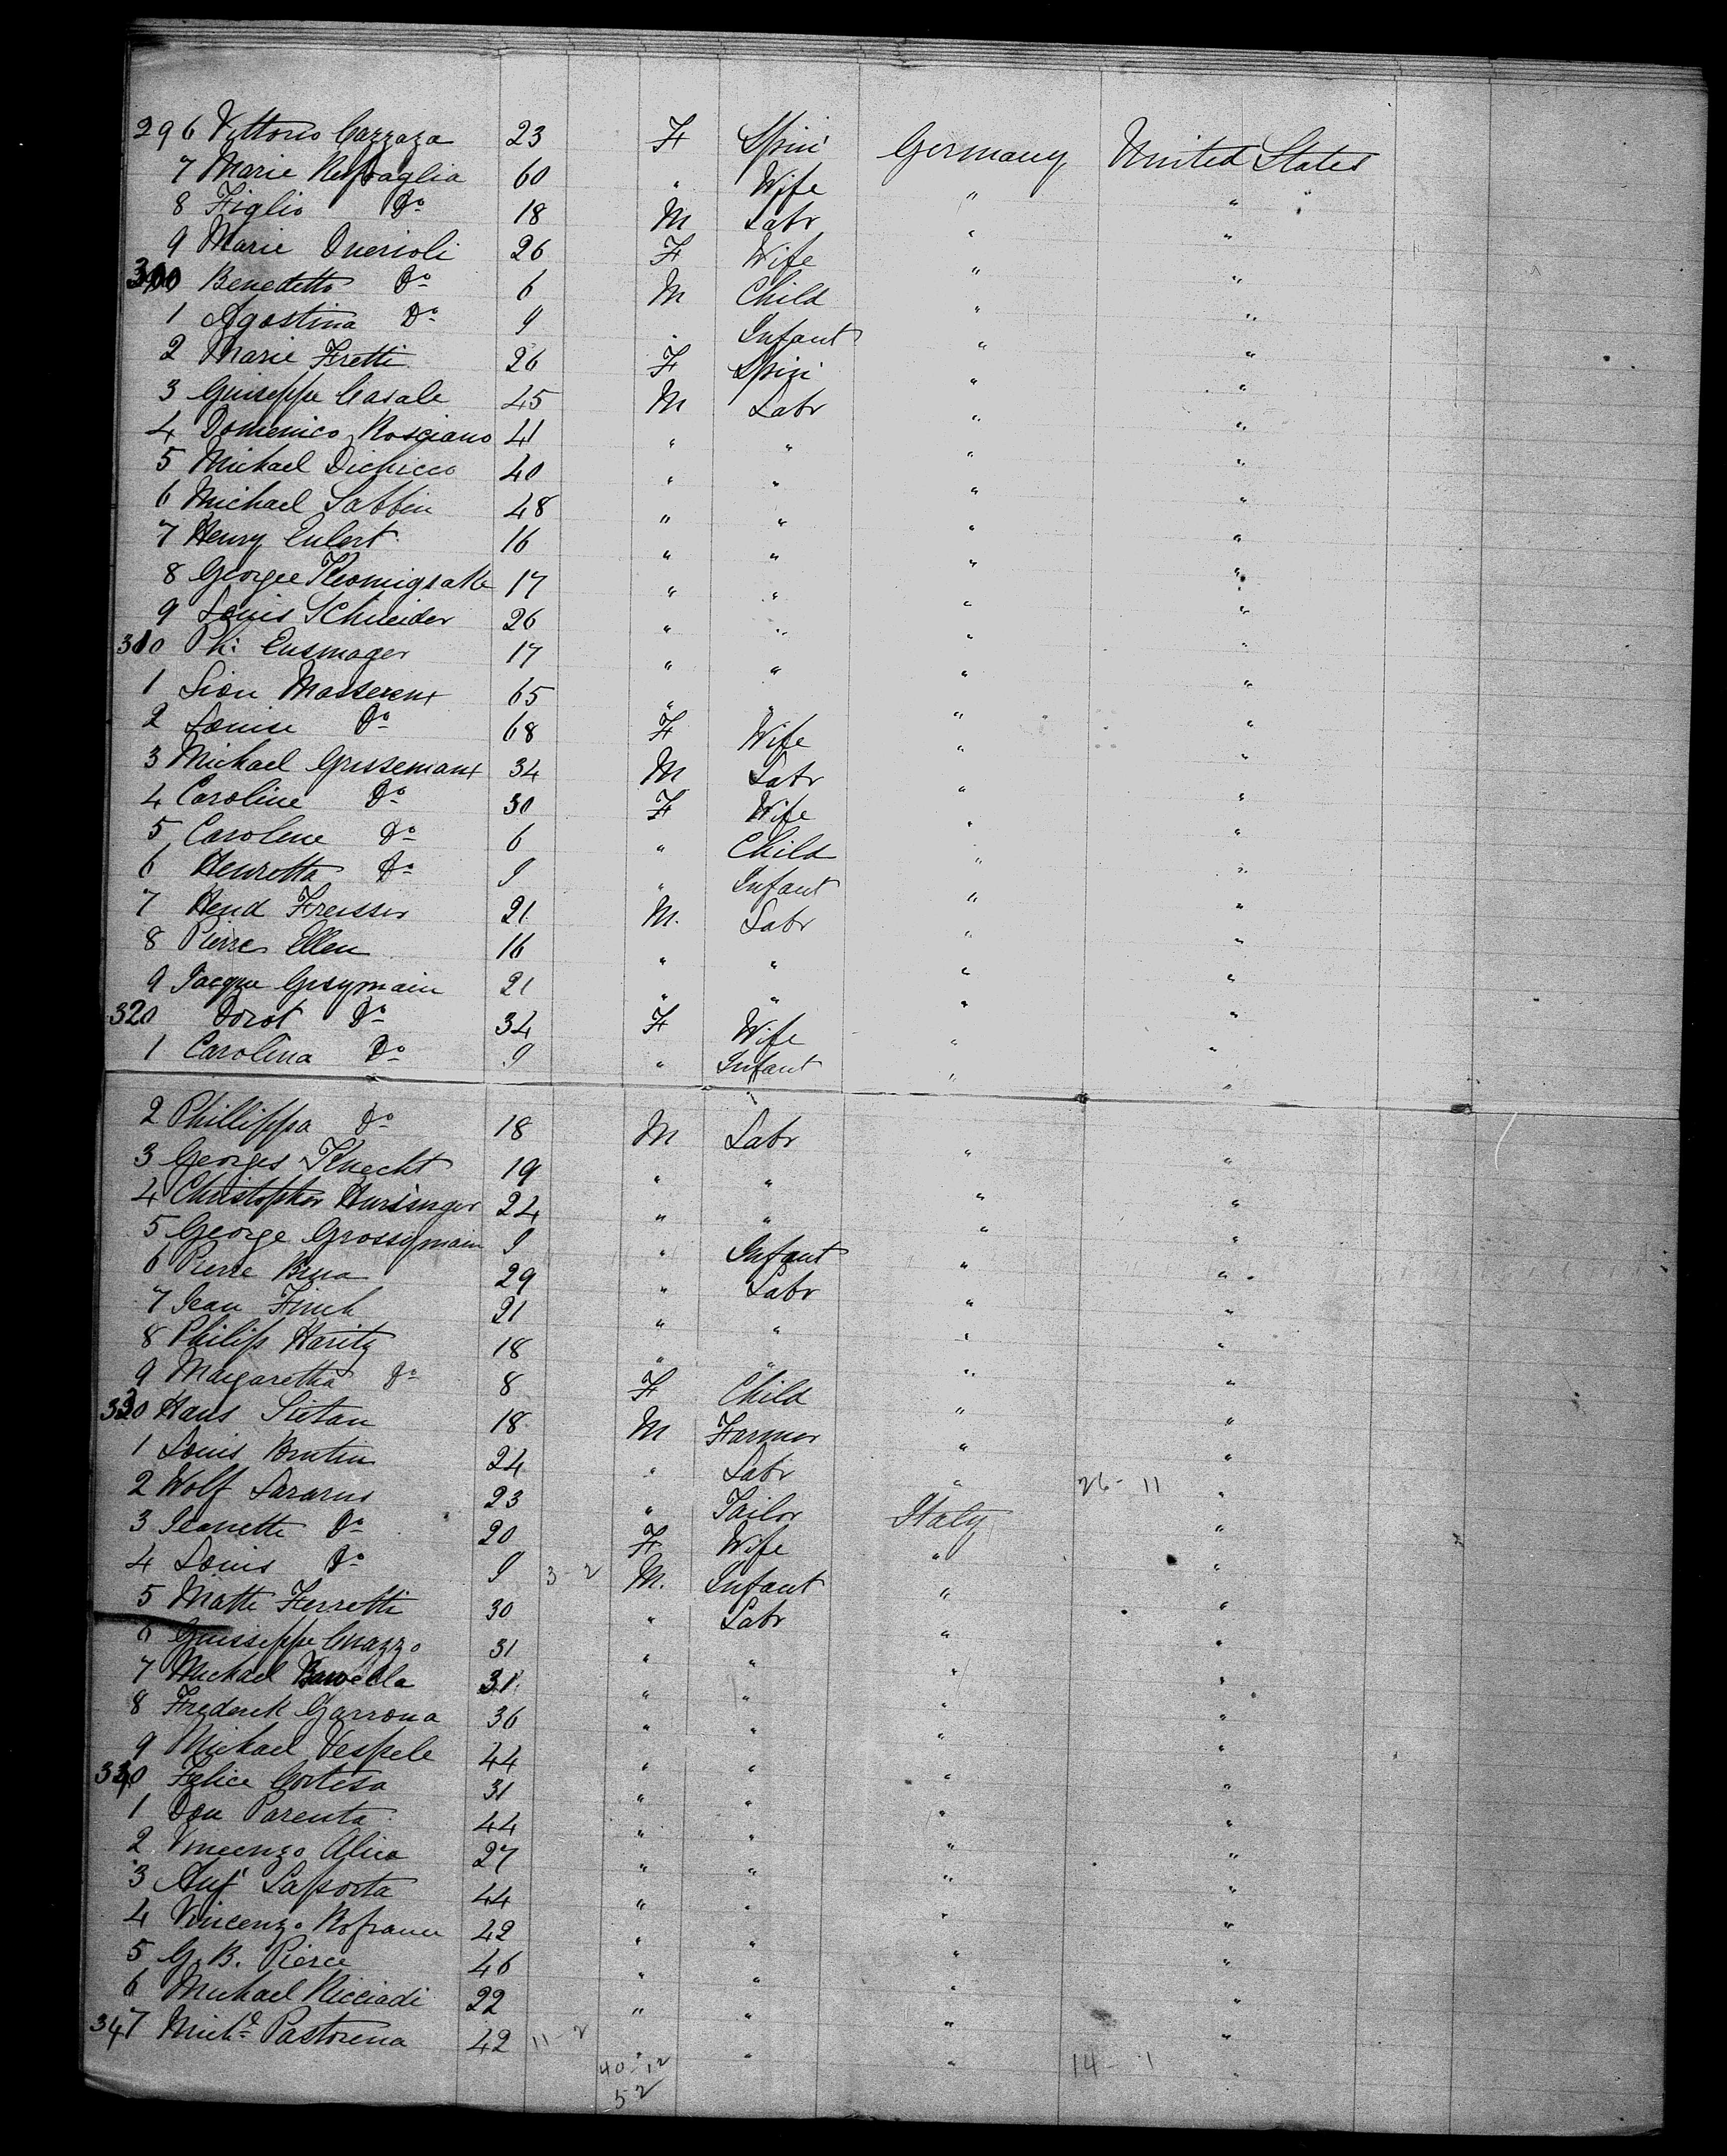 296 Vittorio Cazzaza 23 F Spin' Germany United States
7 Marie 60 " Wife " "
8 Figlio Do 18 M Labr " "
9 Marie Querioli 26 F Wife " "
300 Benedetto Do 6 M Child " "
1 Agostina Do 9 " Infant " "
2 Marie Fretti 26 F Spin' " "
3 Guiseppe Casale 45 M Labr " "
4 Domenico Rosciano 41 " " " "
5 Michael Dichicco 40 " " " "
6 Michael 48 " " " "
7 Henry Eulert 16 " " " "
8 George 17 " " " "
9 Louis Schneider 26 " " " "
310 Ph: Ensmager 17 " " " "
1 Lion 65 " " " "
2 Louise Do 68 F Wife " "
3 Michael 34 M Labr " "
4 Caroline Do 30 F Wife " "
5 Carolene Do 6 " Child " "
6 Henretta Do 9 " Infant " "
7 21 M. Labr " "
8 Pierre Ellen 16 " " " "
9 Jacque 21 " " " "
320 Dorot Do 34 F Wife " "
1 Carolina Do 9 " Infant " "
2 Phillippa Do 18 M Labr " "
3 Georges Knecht 19 " " " "
4 Christopher Hursinger 24 " " " "
5 George Grossymain 9 " Infant " "
6 Pierre Brua 29 " Labr " "
7 Jean Finck 21 " " " "
8 Philip Haritz 18 " " " "
9 Margaretha Do 8 F Child " "
330 Hans 18 M Farmer " "
1 Louis 24 " Labr " 26 - 11 "
2 Wolf Lazarus 23 " Tailor Italy "
3 Jeanette Do 20 F Wife " "
4 Louis Do 9 3 - 2 M. Infant " "
5 Matte Ferretti 30 " Labr " "
6 Guisseppe 31 " " " "
7 Michael 31 " " " "
8 Frederick Garrona 36 " " " "
9 Michael Vespele 44 " " " "
340 Felice Cortesa 31 " " " "
1 Don Parenta 44 " " " "
2 Vincenzo Alica 27 " " " "
3 Laporta 44 " " " "
4 Vincenzo Rofrano 42 " " " "
5 G. B. Pierce 46 " " " "
6 Michael Ricciadi 22 " " " "
347 Michl Pastorena 42 11 - 2 " " " 14 - 1 "
40 - 12
52